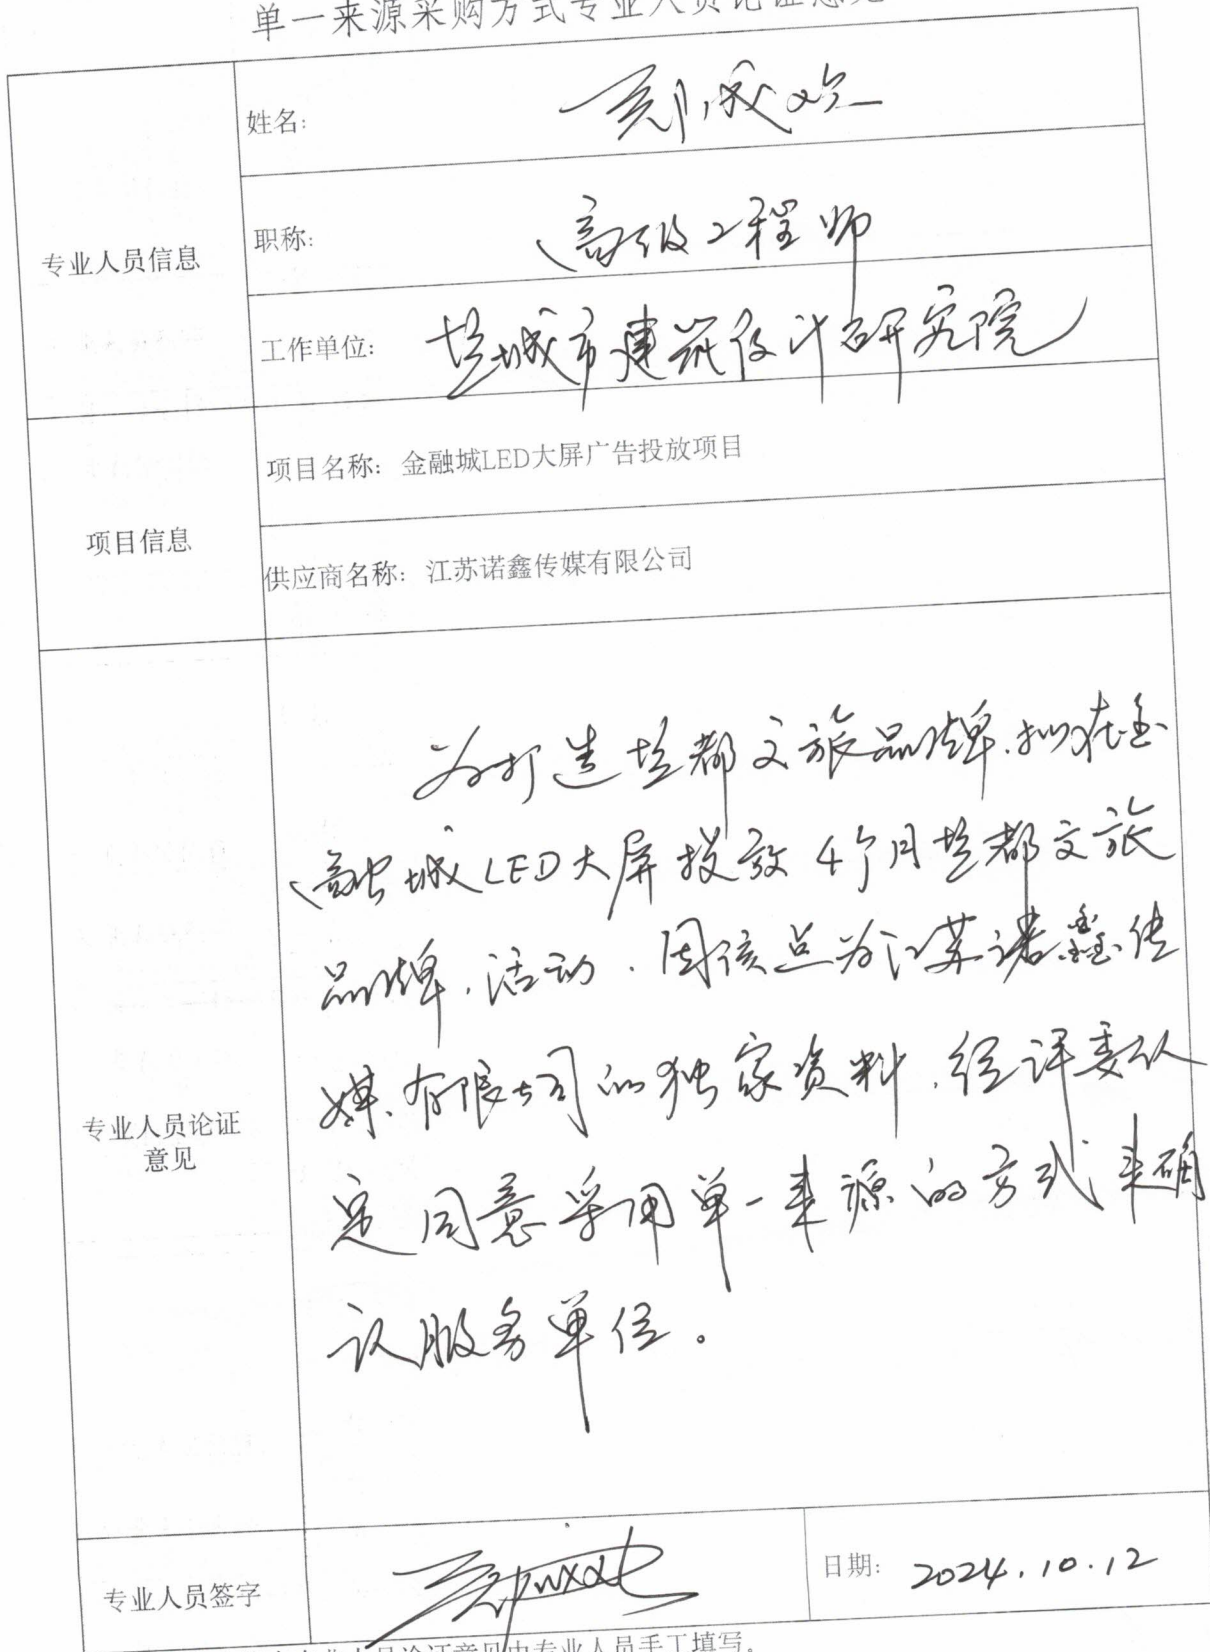 单一来源采购方式专业人员论证意见
专业人员信息
姓名:
职称: 高级工程师
工作单位: 盐城市建筑设计研究院
项目信息
项目名称: 金融城LED大屏广告投放项目
供应商名称: 江苏诺鑫传媒有限公司
专业人员论证
意见
为打造盐都文旅品牌,拟在金
融城LED大屏投放4个月盐都文旅
品牌、活动,因该点为江苏诺鑫传
媒有限公司的独家资料,经评委认
定同意采用单一来源的方式来确
认服务单位。
专业人员签字
日期: 2024.10.12
专业人员论证意见由专业人员手工填写。